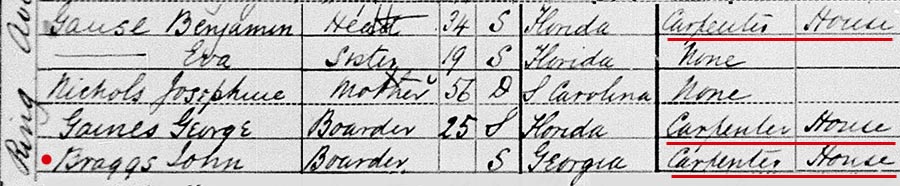 Gause Benjamin Head 34 S Florida Carpenter House
—— Eva Sister 19 S Florida None
Nichols Josephine Mother 56 D S Carolina None
Gaines George Boarder 25 S Florida Carpenter House
Braggs John Boarder S Georgia Carpenter House
Ring